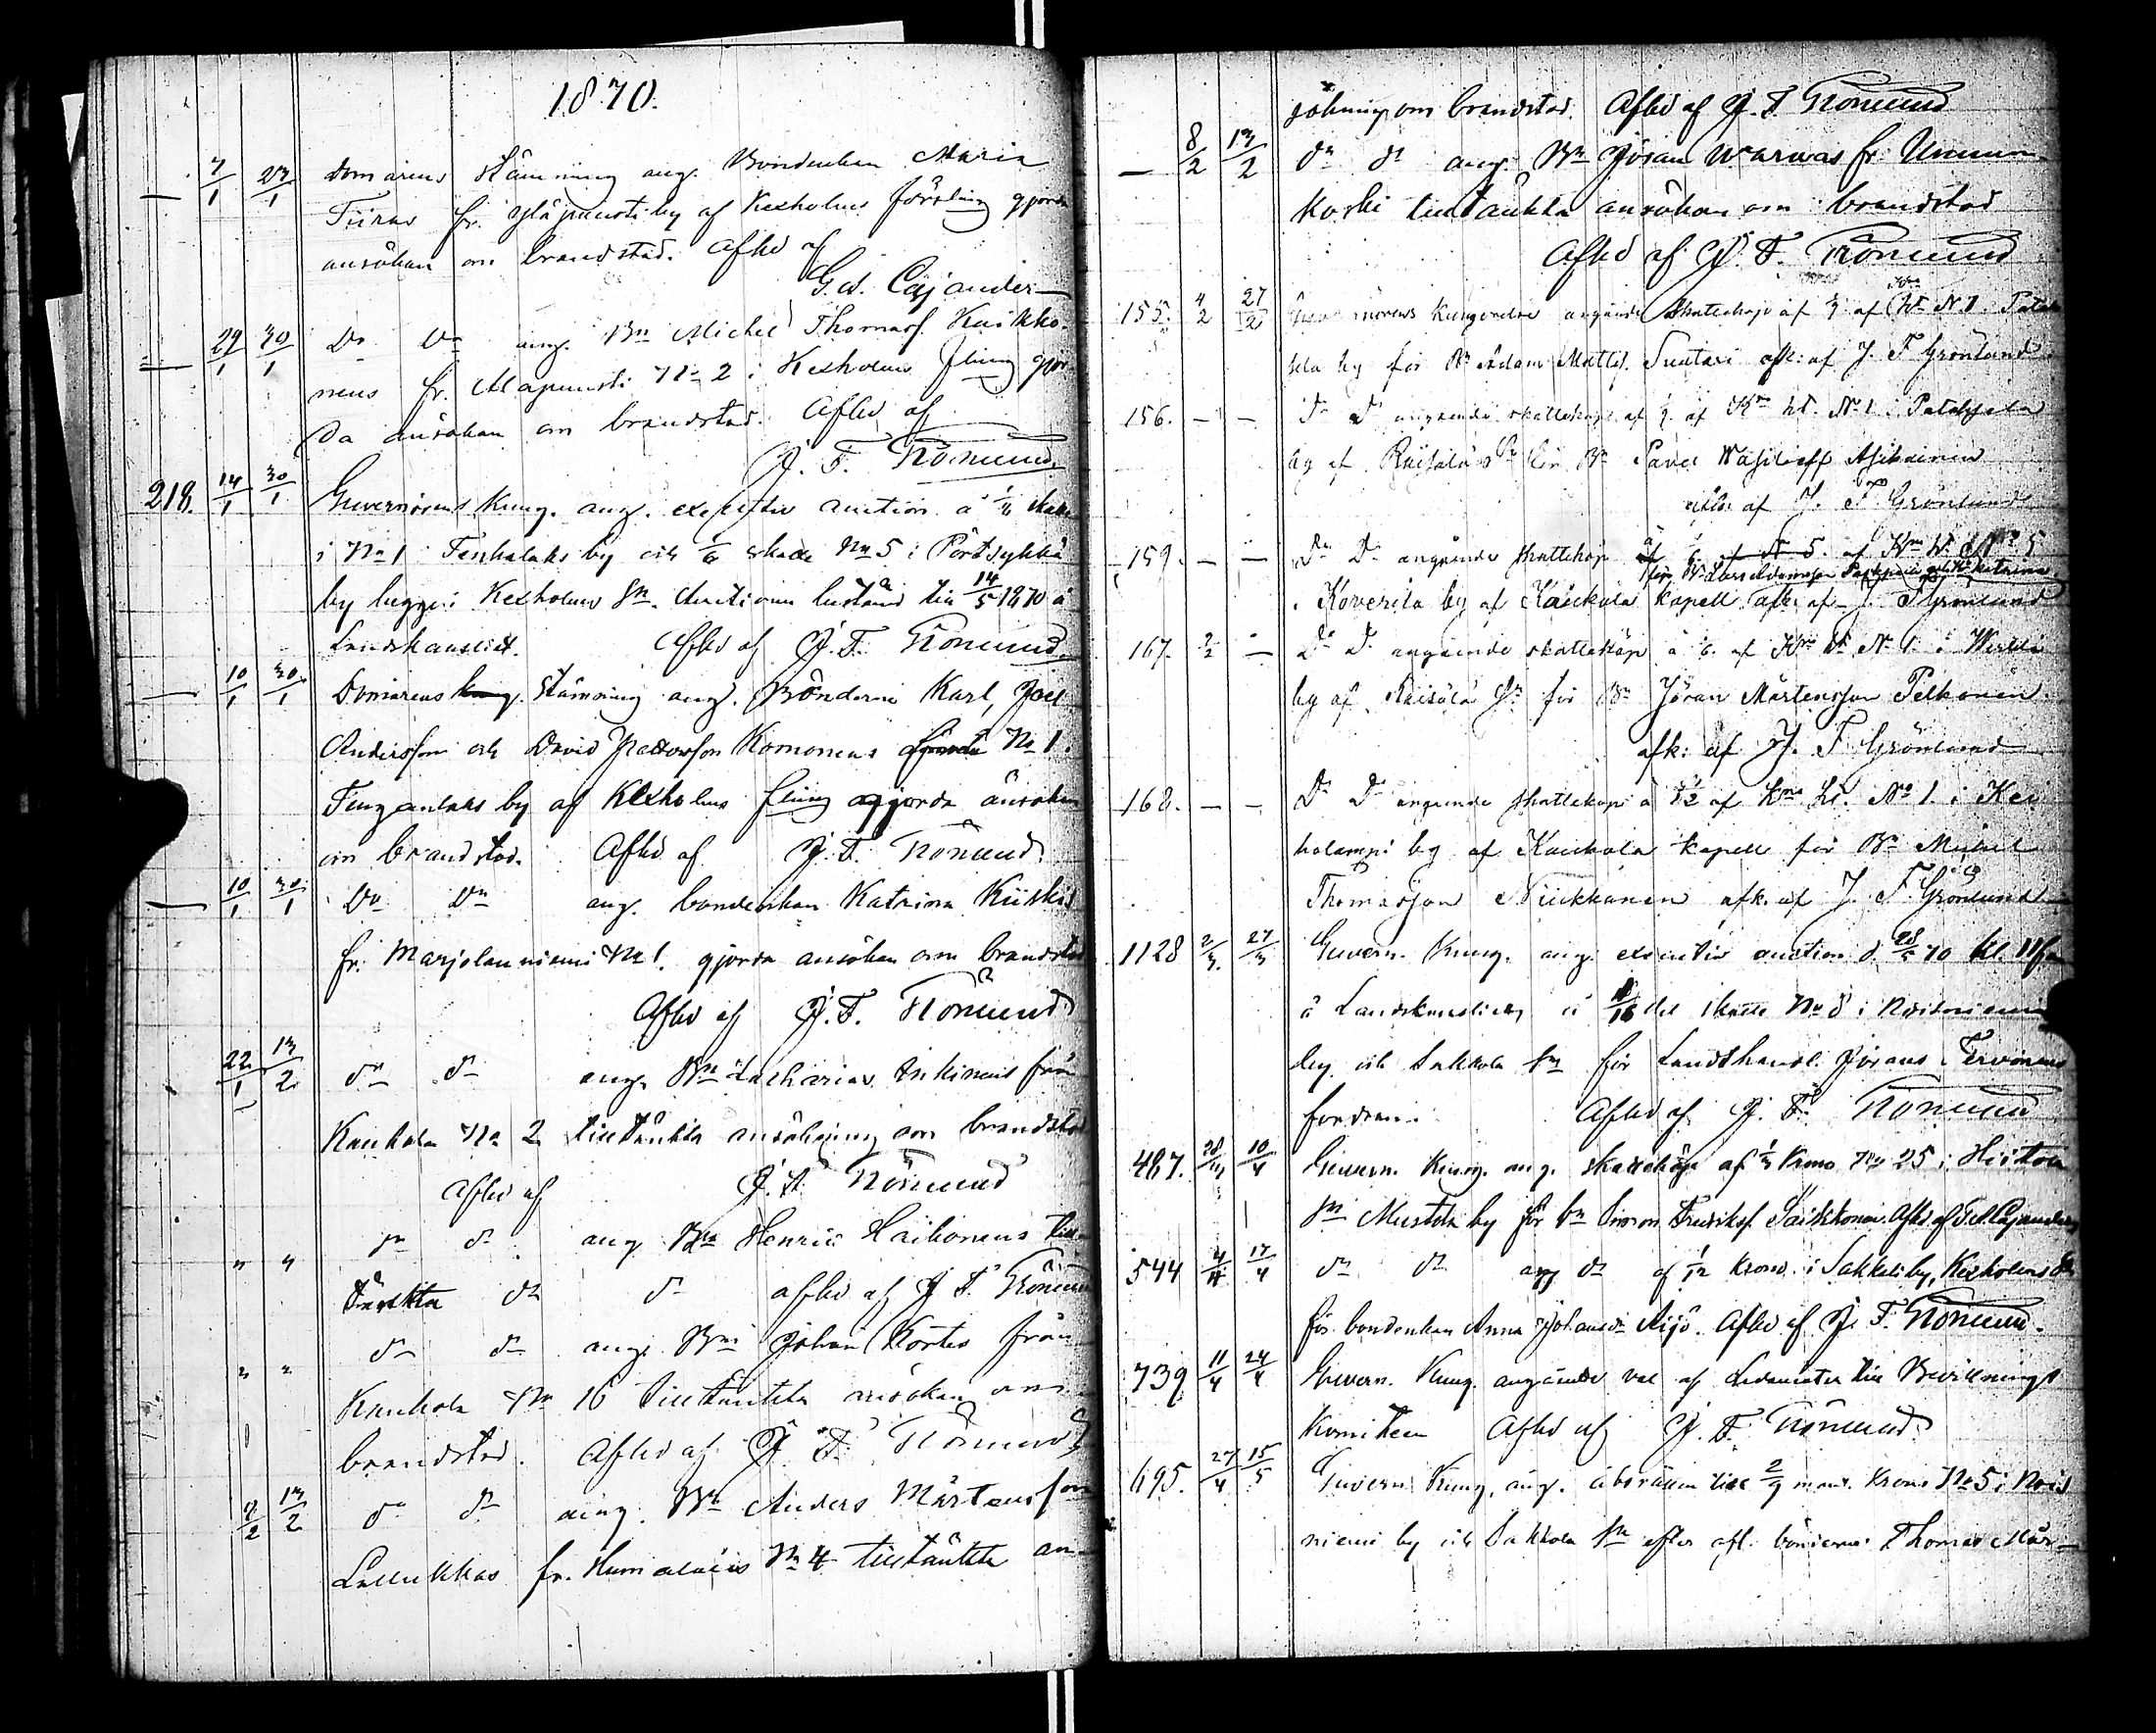 1870.
— 7/1 23/1 Domarens stämning ang. Bondenkan Maria
Tiiras fr. Yläpuusti by af Kexholms förslmg gjorda
ansökan om brandstod. Afkd af
G. W. Cajander
— 29/1 30/1 Do Do ang. Bn Michel Thomass. Kuikko-
nens fr. Alapuusti No 2 i Kexholms flmg gjor
da ansökan om brandstod. Afkd af
J. F. Grönlund
218. 14/1 30/1 Guvernörens Kung. ang. exekutiv auction å 1/6 skatte
i No 1 Tenkalaks by och 1/6 skatte No 5 i Pörtsykkä
by lugge i Kexholms Sn. Auctionen bestånd till 14/5 1870 å
Landskansliet. Afkd af J. F. Grönlund
— 10/1 30/1 Domarens stämning ang. Bönderne Karl, Joel
Andersson och David Komonens No 1.
Tengankalaks by af Kexholms flmg gjorda ansökan
om brandstod. Afkd af J. F. Grönlund
— 10/1 30/1 Do Do ang. bondenkan Katrina Kiiskis
fr. Marjolanniemi No 1. gjorda ansökan om brandstod
Afkd af J. F. Grönlund
22/1 13/2 do do ang. Bn Zacharias Inkinens från
Kaukola No 2 tilltänkta ansökning om brandstod
Afkd af J. F. Grönlund
" " do do ang Bn Henric Haikonens till-
tänkta do do afkd af J. F. Grönlund
" " do do ang. Bn Johan Kortes från
Kaukola No 16 tilltänkta ansökan om
brandstod. Afkd af J. F. Grönlund
7/2 13/2 do do ang. Bn Anders Mårtensson
Lallukkas fr. Humalais No 4 tilltänkta an-
sökning om brandstod. Afkd af J. F. Grönlund
— 8/2 13/2 do do ang. Bn Jöran Warwas fr. Unnun-
koski tilltänkta ansökan om brandstod
Afkd af J. F. Grönlund
155. 4/2 27/2 Guvernörens Kungörelse angående skatteköp af af No 1.
by för Bn Adam Matts. Suutari afk: af J. F Grönlund
156. — — Do Do angående skatteköp af af Kro ht. No 1. i
by af Räisälä Sn för Bn Pavel Wasilieff Asikainen
afk: af J. F Grönlund
159. — — Do Do angående skatteköp å 1/6. af No 5. af Kro ht. No 5
i Koverila by af Kaukola kapell afk: af J. F Grönlund
167. 2/2 — Do Do angående skatteköp å 1/6. af Kro ht. No 1. i
by af Räisälä Sn för Bn Jöran Mårtensson Pelkonen
afk: af J. F Grönlund
168. — — Do Do angående skatteköp å 1/2 af Kro ht. No 1. i Kei
holampi by af Kaukola kapell för Bn Michel
Thomasson Niukkanen afk. af J. F. Grönlund
1128 2/3 27/3 Guvern. Kung. ang. exekutiv auction d. 28/5 70 kl. 11 fm
å Landskansliet, å 1/16 del skatte No 8 i Noisniemi
by och Sakkola Sn för Landthandl. Jörans Tervonens
fordran. Afkd af J. F. Grönlund
487. 28/3 10/4 Guvern. Kung. ang. skatteköp af 1/3 Krono No 25 i Hiitola
Sn Mustola by för bn Simon Fredriks. Saikkonen. Afkd af G. W. Cajander
544 4/4 17/4 do do ang do af 1/12 krono i Sakkali by, Kexholms Sn
för bondenkan Anna Johansdr Äijö. Afkd af J. F. Grönlund.
739 11/4 24/4 Guvern. Kung. angående val af Ledamöter till Bevillnings
Komiteen Afkd af J. F. Grönlund
695. 27/4 15/5 Guvern. Kung. ang. åborätten till 2/9 mant. Krono No 5 i Nois
niemi by och Sakkola Sn efter afl. bönderne Thomas Mår-